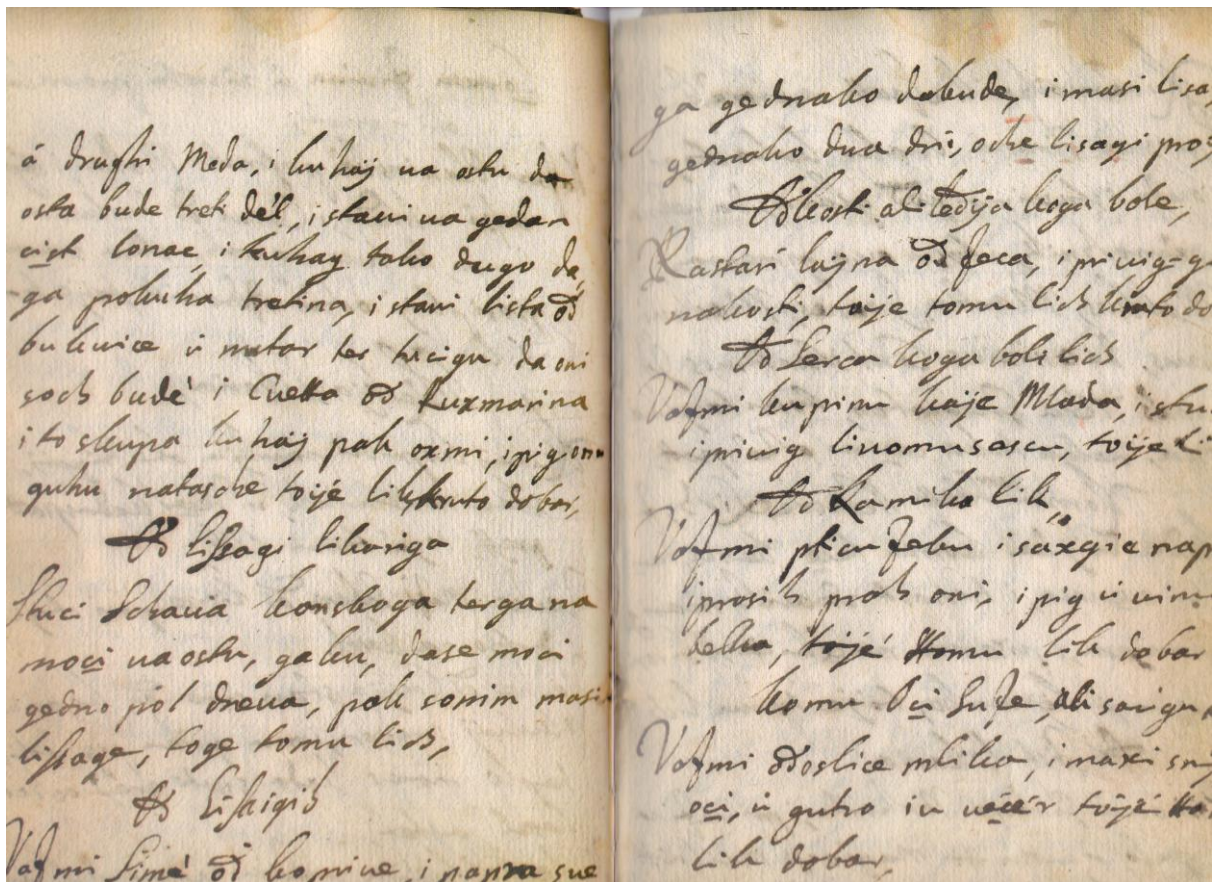 á drughi Meda, i kuhaj ua ostu da
osta bude treti dél, i staui ua gedan
cist lonac, i kuhay tako dugo da,
ga pokuha tretina, i staui lista od
bukuice ú nutar ter tucigu da oni
soch budé i Cuetta od Ruxmarina
i to skupa kuhaj pak oxmi, i pig onu
guhu natasche toijé lik kruto dobar,
Od lissagi likariga
Stuci Schauia konskoga terga na
moci ua ostu, gaku, dase moci
gedno pol dneua, pak sonim masi
lissage, toge tomu lich,
Od Lissigih
Vazmi Simé od kopriue, i papra sue
ga gednako dabude, i masi lisa,
gednako dua dni, oche lisagi
Od kosti ali ledija koga bole,
Rastari lajna od zeca, i priuig
nakosti, toije tomu lich kruto do
Od Serca koga bole lich
Vazmi kupinu kaje Mlada, i
i priuig liuomu sascu, toije li
Od Kamika lik,
Vazmi pticu Zebu i saxgie nap
i prosih prah oni, i pig ú uinu
bella, toijé ttomu lik dobar
komu Oci Suze, ali
Vazmi od oslice mlika, i maxi
oci, ú gutro i u uécér toijé
lik dobar,